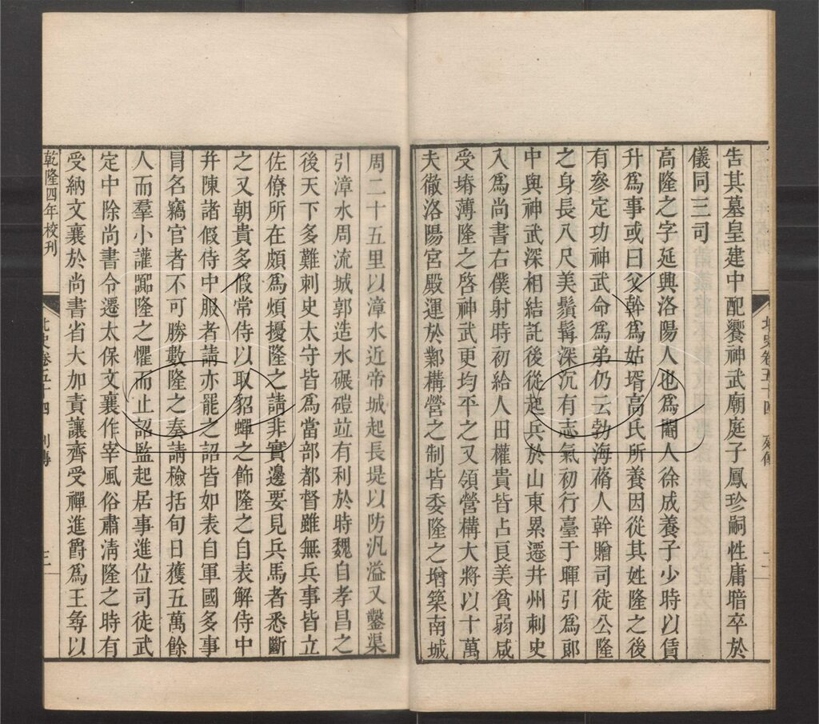 告其墓皇建中配饗神武廟庭子鳳珍嗣性庸暗卒於
儀同三司
高隆之字延興洛陽人也爲閹人徐成養子少時以賃
升爲事或曰父幹爲姑壻高氏所養因從其姓隆之後
有參定功神武命爲弟仍云勃海蓨人幹贈司徒公隆
之身長八尺美鬚髯深沉有志氣初行臺于暉引爲郎
中與神武深相結託後從起兵於山東累遷并州刺史
入爲尚書右僕射時初給人田權貴皆占良美貧弱咸
受塉薄隆之啓神武更均平之又領營構大將以十萬
夫徹洛陽宮殿運於鄴構營之制皆委隆之增築南城
周二十五里以漳水近帝城起長堤以防汎溢又鑿渠
引漳水周流城郭造水碾磑並有利於時魏自孝昌之
後天下多難刺史太守皆爲當部都督雖無兵事皆立
佐僚所在頗爲煩擾隆之請非實邊要見兵馬者悉斷
之又朝貴多假常侍以取貂蟬之飾隆之自表解侍中
并陳諸假侍中服者請亦罷之詔皆如表自軍國多事
冒名竊官者不可勝數隆之奏請檢括旬日獲五萬餘
人而羣小讙嚻隆之懼而止詔監起居事進位司徒武
定中除尚書令遷太保文襄作宰風俗肅淸隆之時有
受納文襄於尚書省大加責讓齊受禪進爵爲王尋以
乾隆四年校刊
北史卷五十四 列傳
三